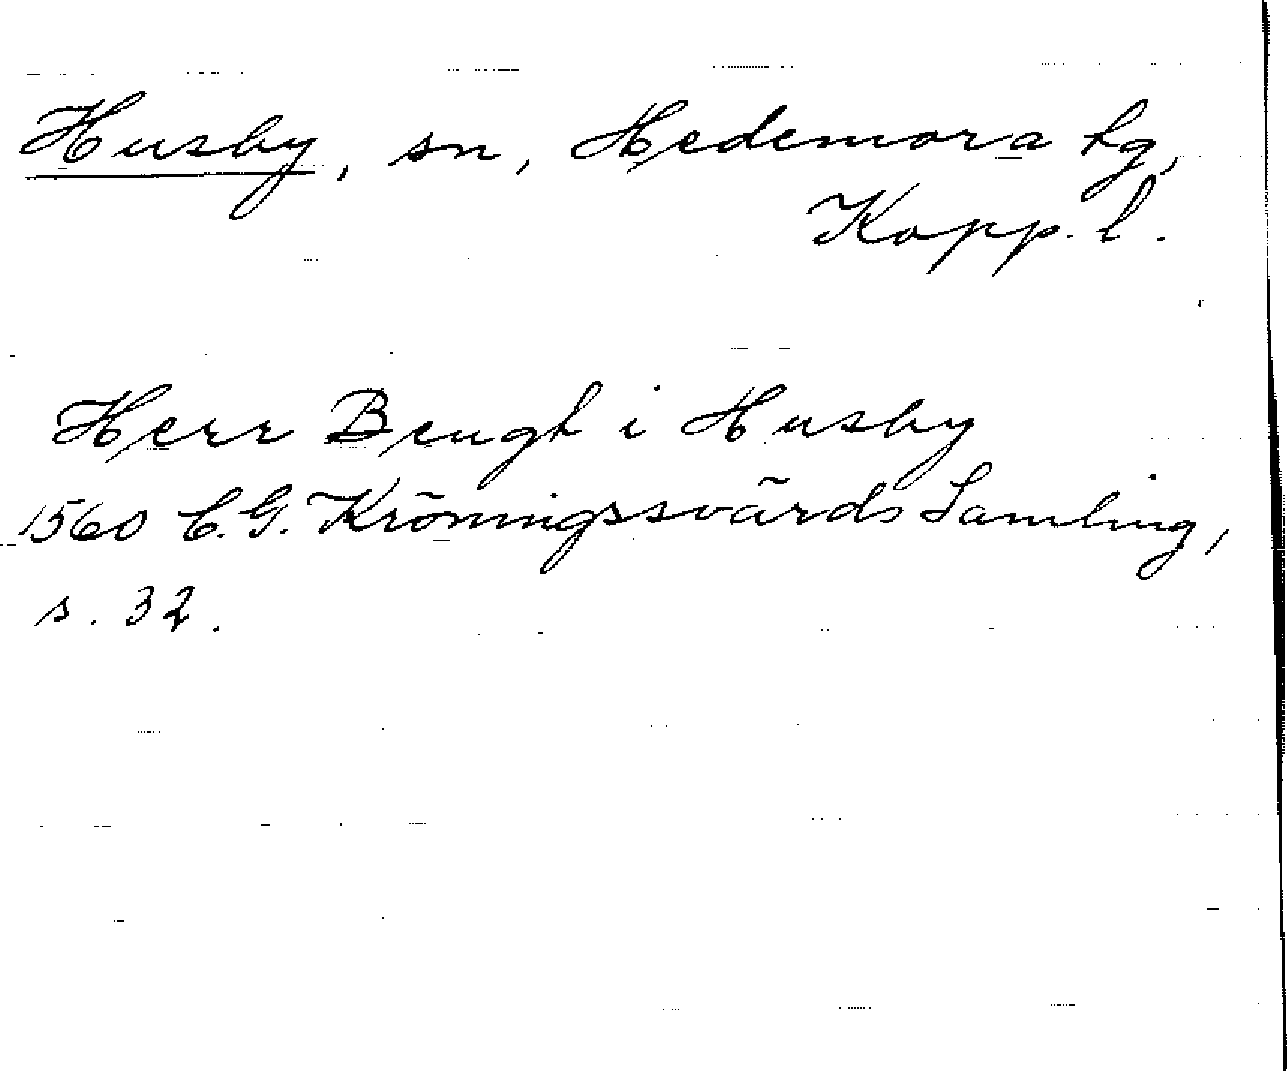 Husby, sn, Hedemora tg,
Kopp. l.
Herr Bengt i Husby
1560 C. G. Kröningssvärds Samling,
s. 32.